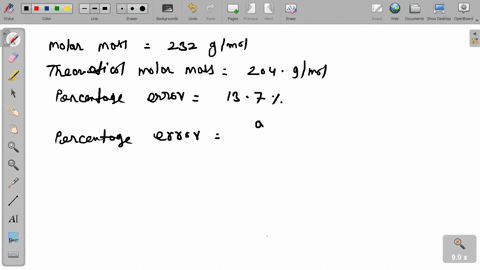 Board Colors Backgrounds Undo Redo Pages Previous Next Erase Board Show Desktop OpenBoard
molar mass = 232 g/mol
Theoretical molar mass = 204. g/mol
Percentage error = 13.7 %.
a
Percentage error =
9.0 x